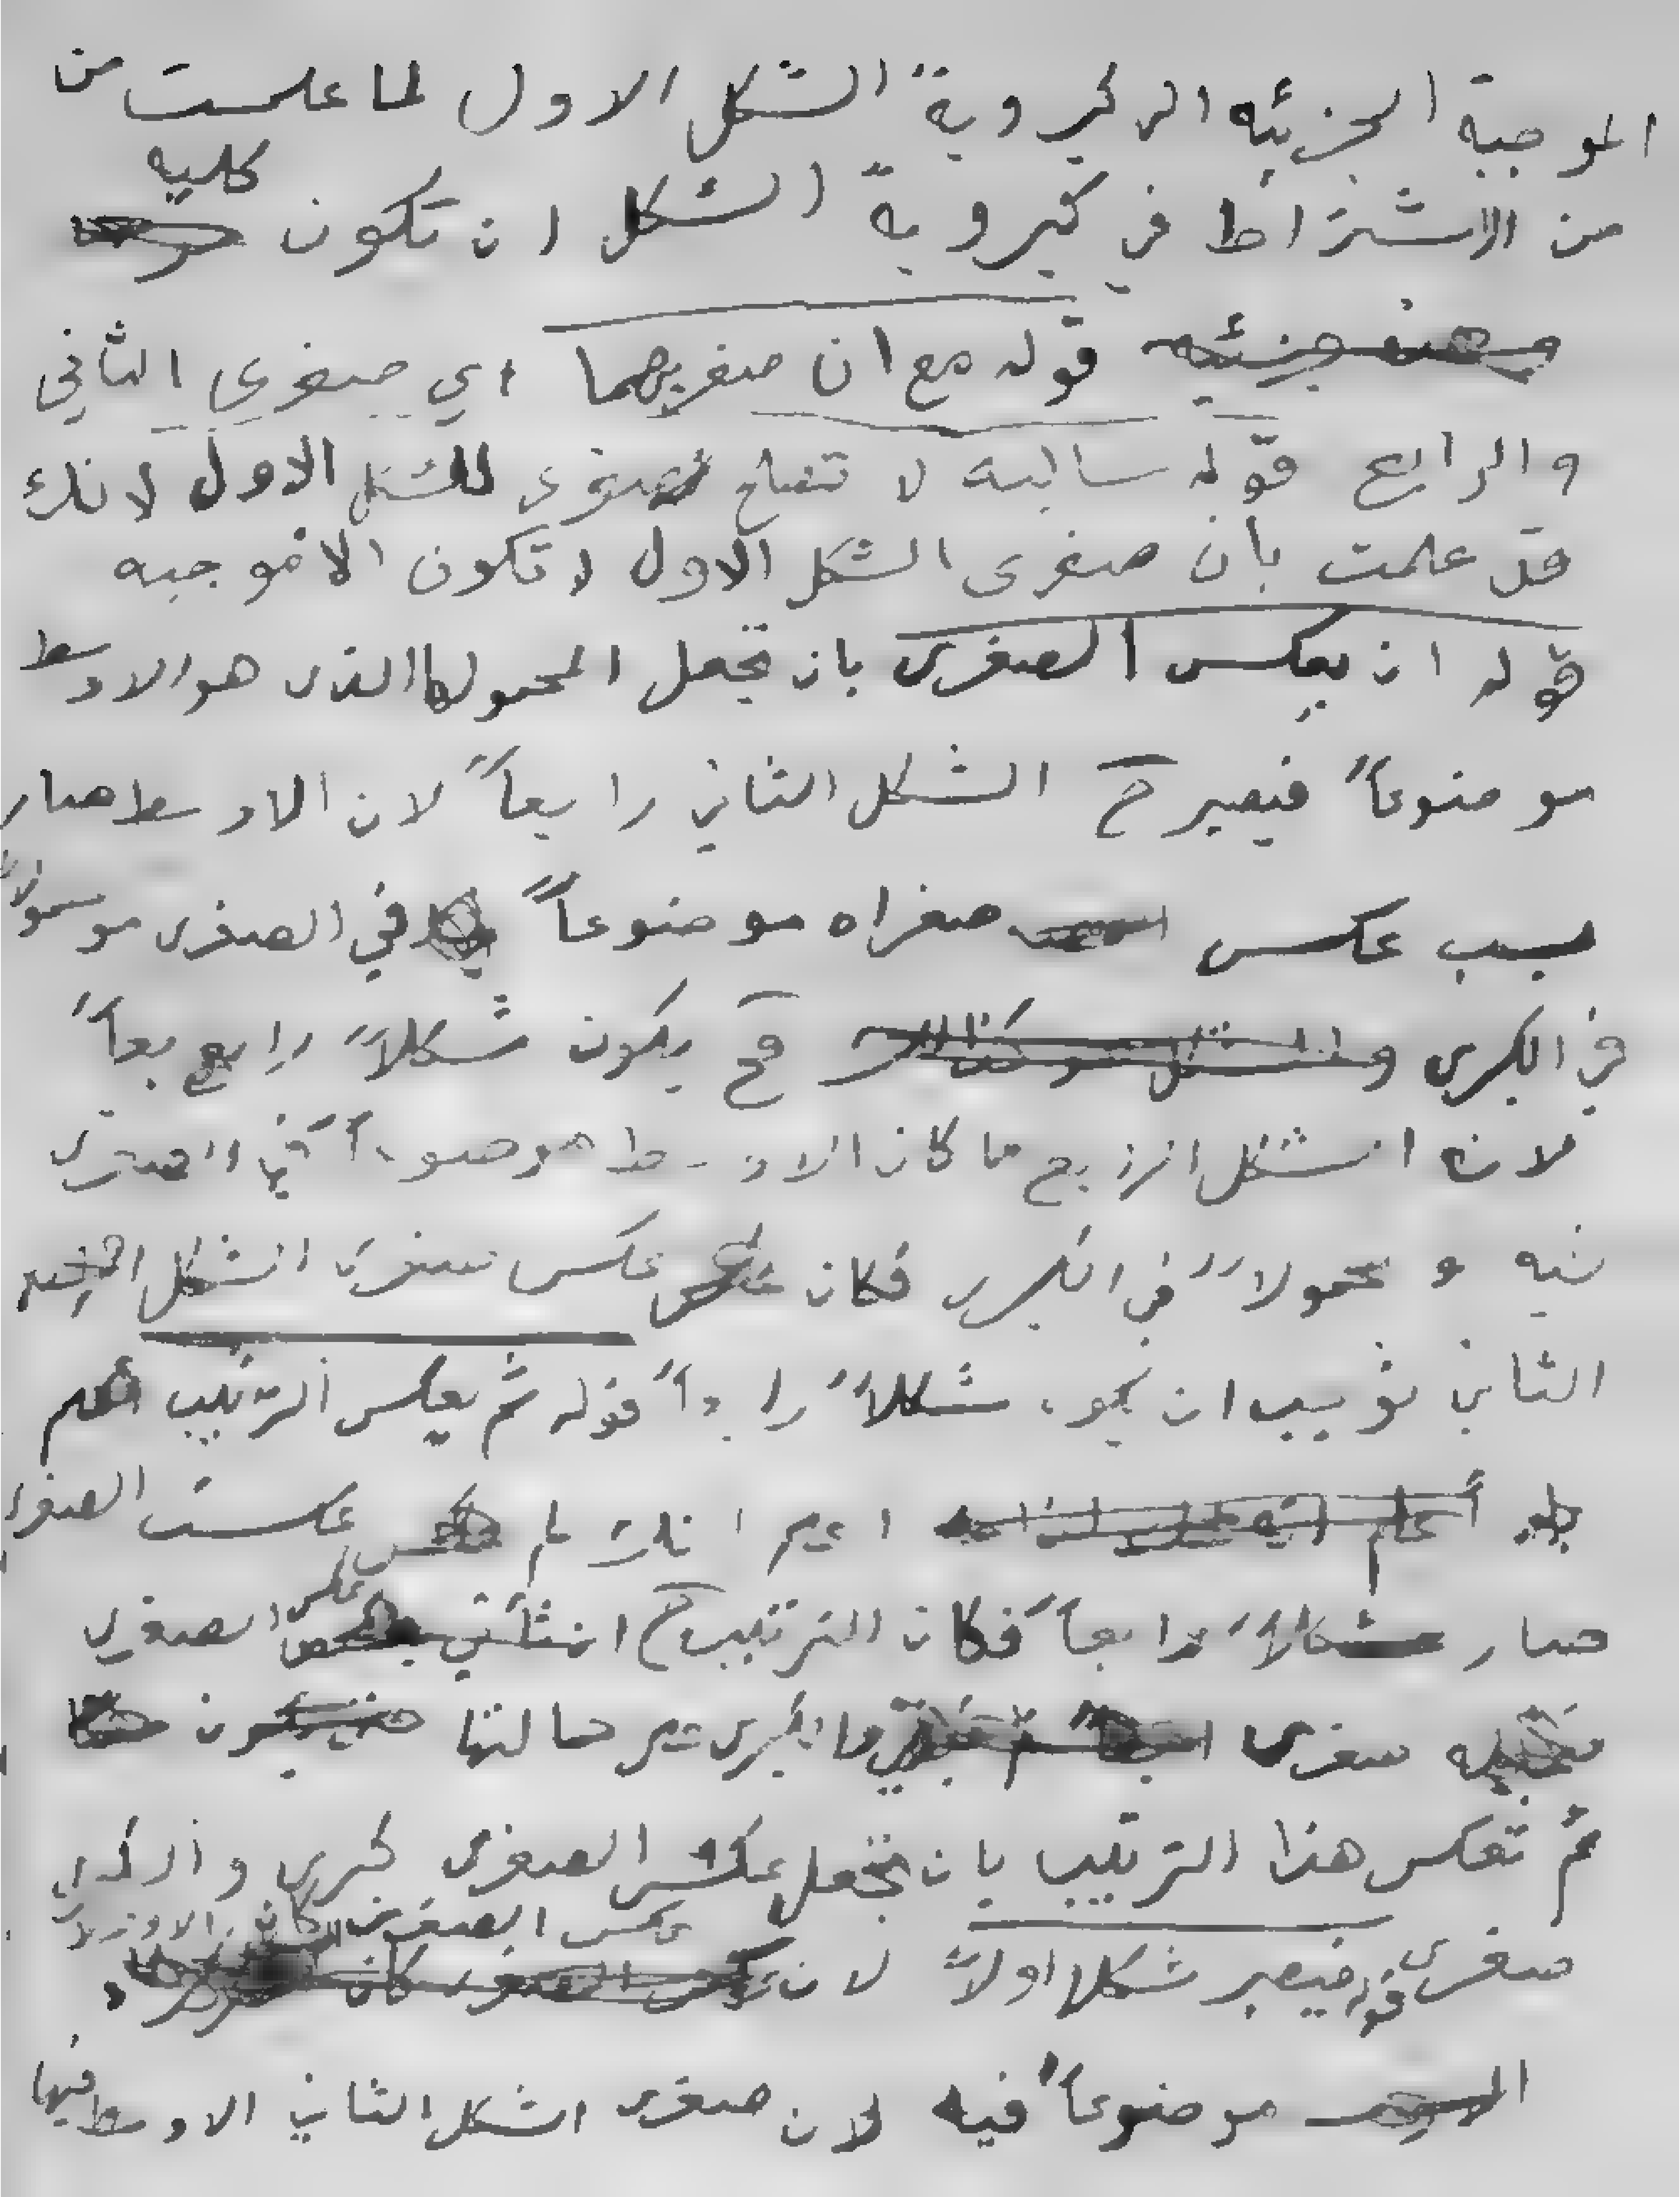 الموجبة الجزئيه الى كبروية الشكل الاول لما علمت من
من الاشتراط في كبروية الشكل ان تكون كليه
قوله مع ان صغريهما اي صغرى الثاني
والرابع قوله سالبة لا تصلح لصغرى للشكل الاول لانك
قد علمت بان صغرى الشكل الاول لا تكون الا موجبه
قوله ان يعكس الصغرى بان تجعل المحمولها الذى هو الاوسط
موضوعاً فيصير ح الشكل الثاني رابعاً لان الاوسط صار
بسبب عكس صغراه موضوعاً في الصغرى
في الكبرى فح يكون شكلاً رابعاً
لانه الشكل الرابع ما كان الاوسط موضوعاً في الصغرى
فيه و محمولا في الكبرى فكان عكس صغرى الشكل
الثاني شكلاً رابعاً قوله ثم يعكس الترتيب
انك لم عكست الصغرا
صار شكلاً رابعاً فكان الترتيب ح عكس الصغرى
صغرى والكبرى حالتها
ثم تعكس هذا الترتيب بان تجعل عكس الصغرى كبرى والكبرى
صغرى قوله فيصير شكلا اولاً لان عكس الصغرى كان الاوسط
موضوعاً فيه لان صغرى الشكل الثاني الاوسط فيها